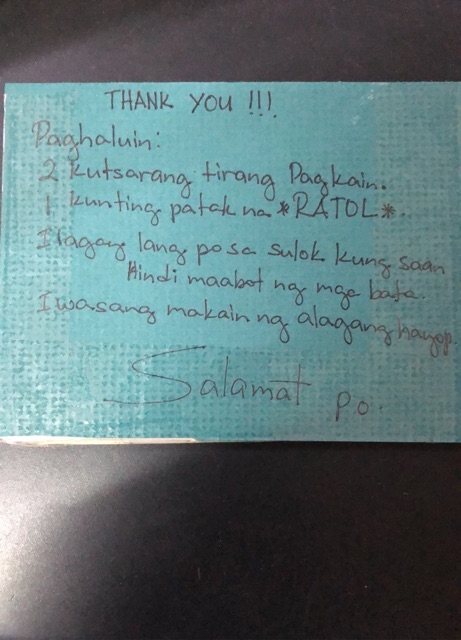 THANK YOU !!!
Paghaluin:
2 kutsarang tirang Pagkain.
1 kunting patak na *RATOL*.
Ilagay lang po sa sulok kung saan
Hindi maabot ng mga bata.
Iwasang makain ng alagang hayop.
Salamat po.